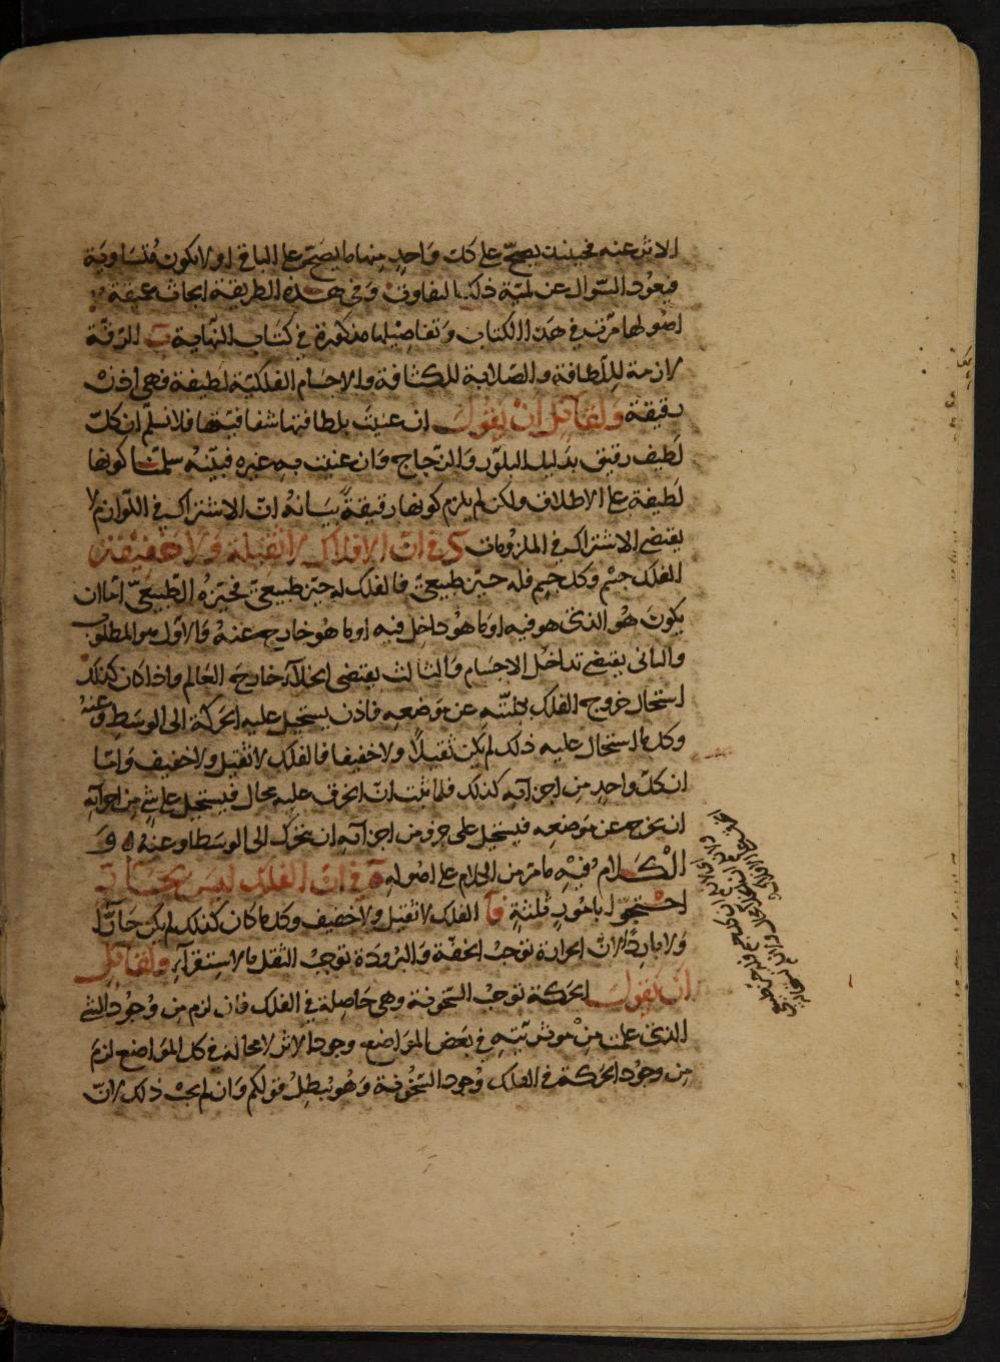 الاثر عنه فحينئذ يصح على كل واحد منها ما يصح على الباقى او لا يكون متساوية
فيعود السوال عن لمية ذلك التفاوت وفى هذه الطريقة ابحاث عميقة
اصولها مرت فى هذا الكتاب وتفاصيلها مذكورة فى كتاب النهاية ب الرقة
لازمة للطافة والصلابة للكثافة والاجسام الفلكية لطيفة فهى اذن
رقيقة ولقائل ان يقول ان عنيت بلطافتها شفافيتها فلا نسلم ان كل
لطيف رقيق بدليل البلور والزجاج وان عنيت به غيره فبينه سلمنا كونها
لطيفة على الاطلاق ولكن لم يلزم كونها رقيقة بيانه ان الاشتراك فى اللوازم لا
يقتضى الاشتراك فى الملزومات فى ان الافلاك لا ثقيلة ولا خفيفة
الفلك جسم وكل جسم فله حيز طبيعى فالفلك له حيز طبيعى فحيزه الطبيعى اما ان
يكون هو الذى هو فيه او ما هو داخل فيه او ما هو خارج عنه والاول هو المطلوب
والثانى يقتضى تداخل الاجسام والثالث يقتضى الخلاء خارج العالم واذا كان كذلك
استحال خروج الفلك بكليته عن موضعه فاذن يستحيل عليه الحركة الى الوسط وعنه
وكل ما استحال عليه ذلك لم يكن ثقيلا ولا خفيفا فالفلك لا ثقيل ولا خفيف واما
ان كل واحد من اجزائه كذلك فلما ثبت ان الخرق عليه محال فيستحيل على شئ من اجزائه
ان يخرج عن موضعه فيستحيل على جزء من اجزائه ان يتحرك الى الوسط او عنه و
الكلام فيه ما مر من الكلام على اصوله ه فى ان الفلك ليس بحار
احتجوا بامور ثلثة آ الفلك لا ثقيل ولا خفيف وكل ما كان كذلك لم يكن حارا
ولا باردا لان الحرارة توجب الخفة والبرودة توجب الثقل بالاستقراء ولقائل
ان يقول الحركة توجب السخونة وهى حاصلة فى الفلك فان لزم من وجود الشئ
الذى علمت من موثريته فى بعض المواضع وجود الاثر لا محالة فى كل المواضع لزم
من وجود الحركة فى الفلك وجود السخونة وهو يبطل قولكم وان لم يجب ذلك لان